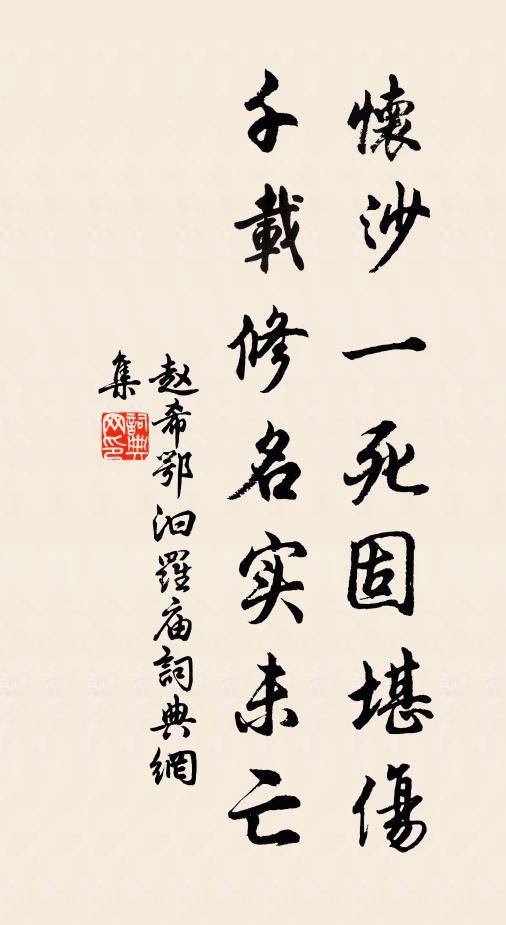 懷沙一死固堪傷
千載修名实未亡
赵希鄂汨羅庙詞典網
集
詞典网印